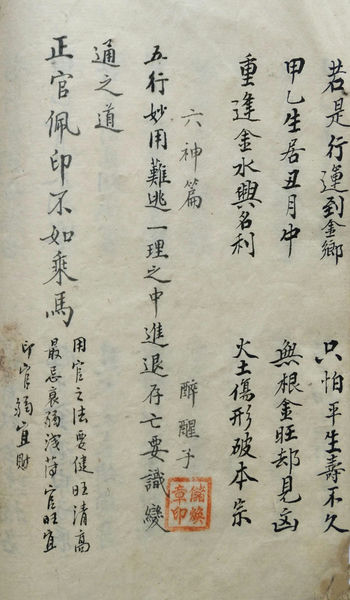 若是行運到金鄉 只怕平生壽不久
甲乙生居丑月中 無根金旺却見凶
重逢金水興名利 火土傷形破本宗
六神篇 醉醒子
五行妙用難逃一理之中進退存亡要識變
通之道
正官佩印不如乘馬
用官之法要健旺清高
最忌衰弱浅薄官旺宜
印官弱宜財
儲煥
章印